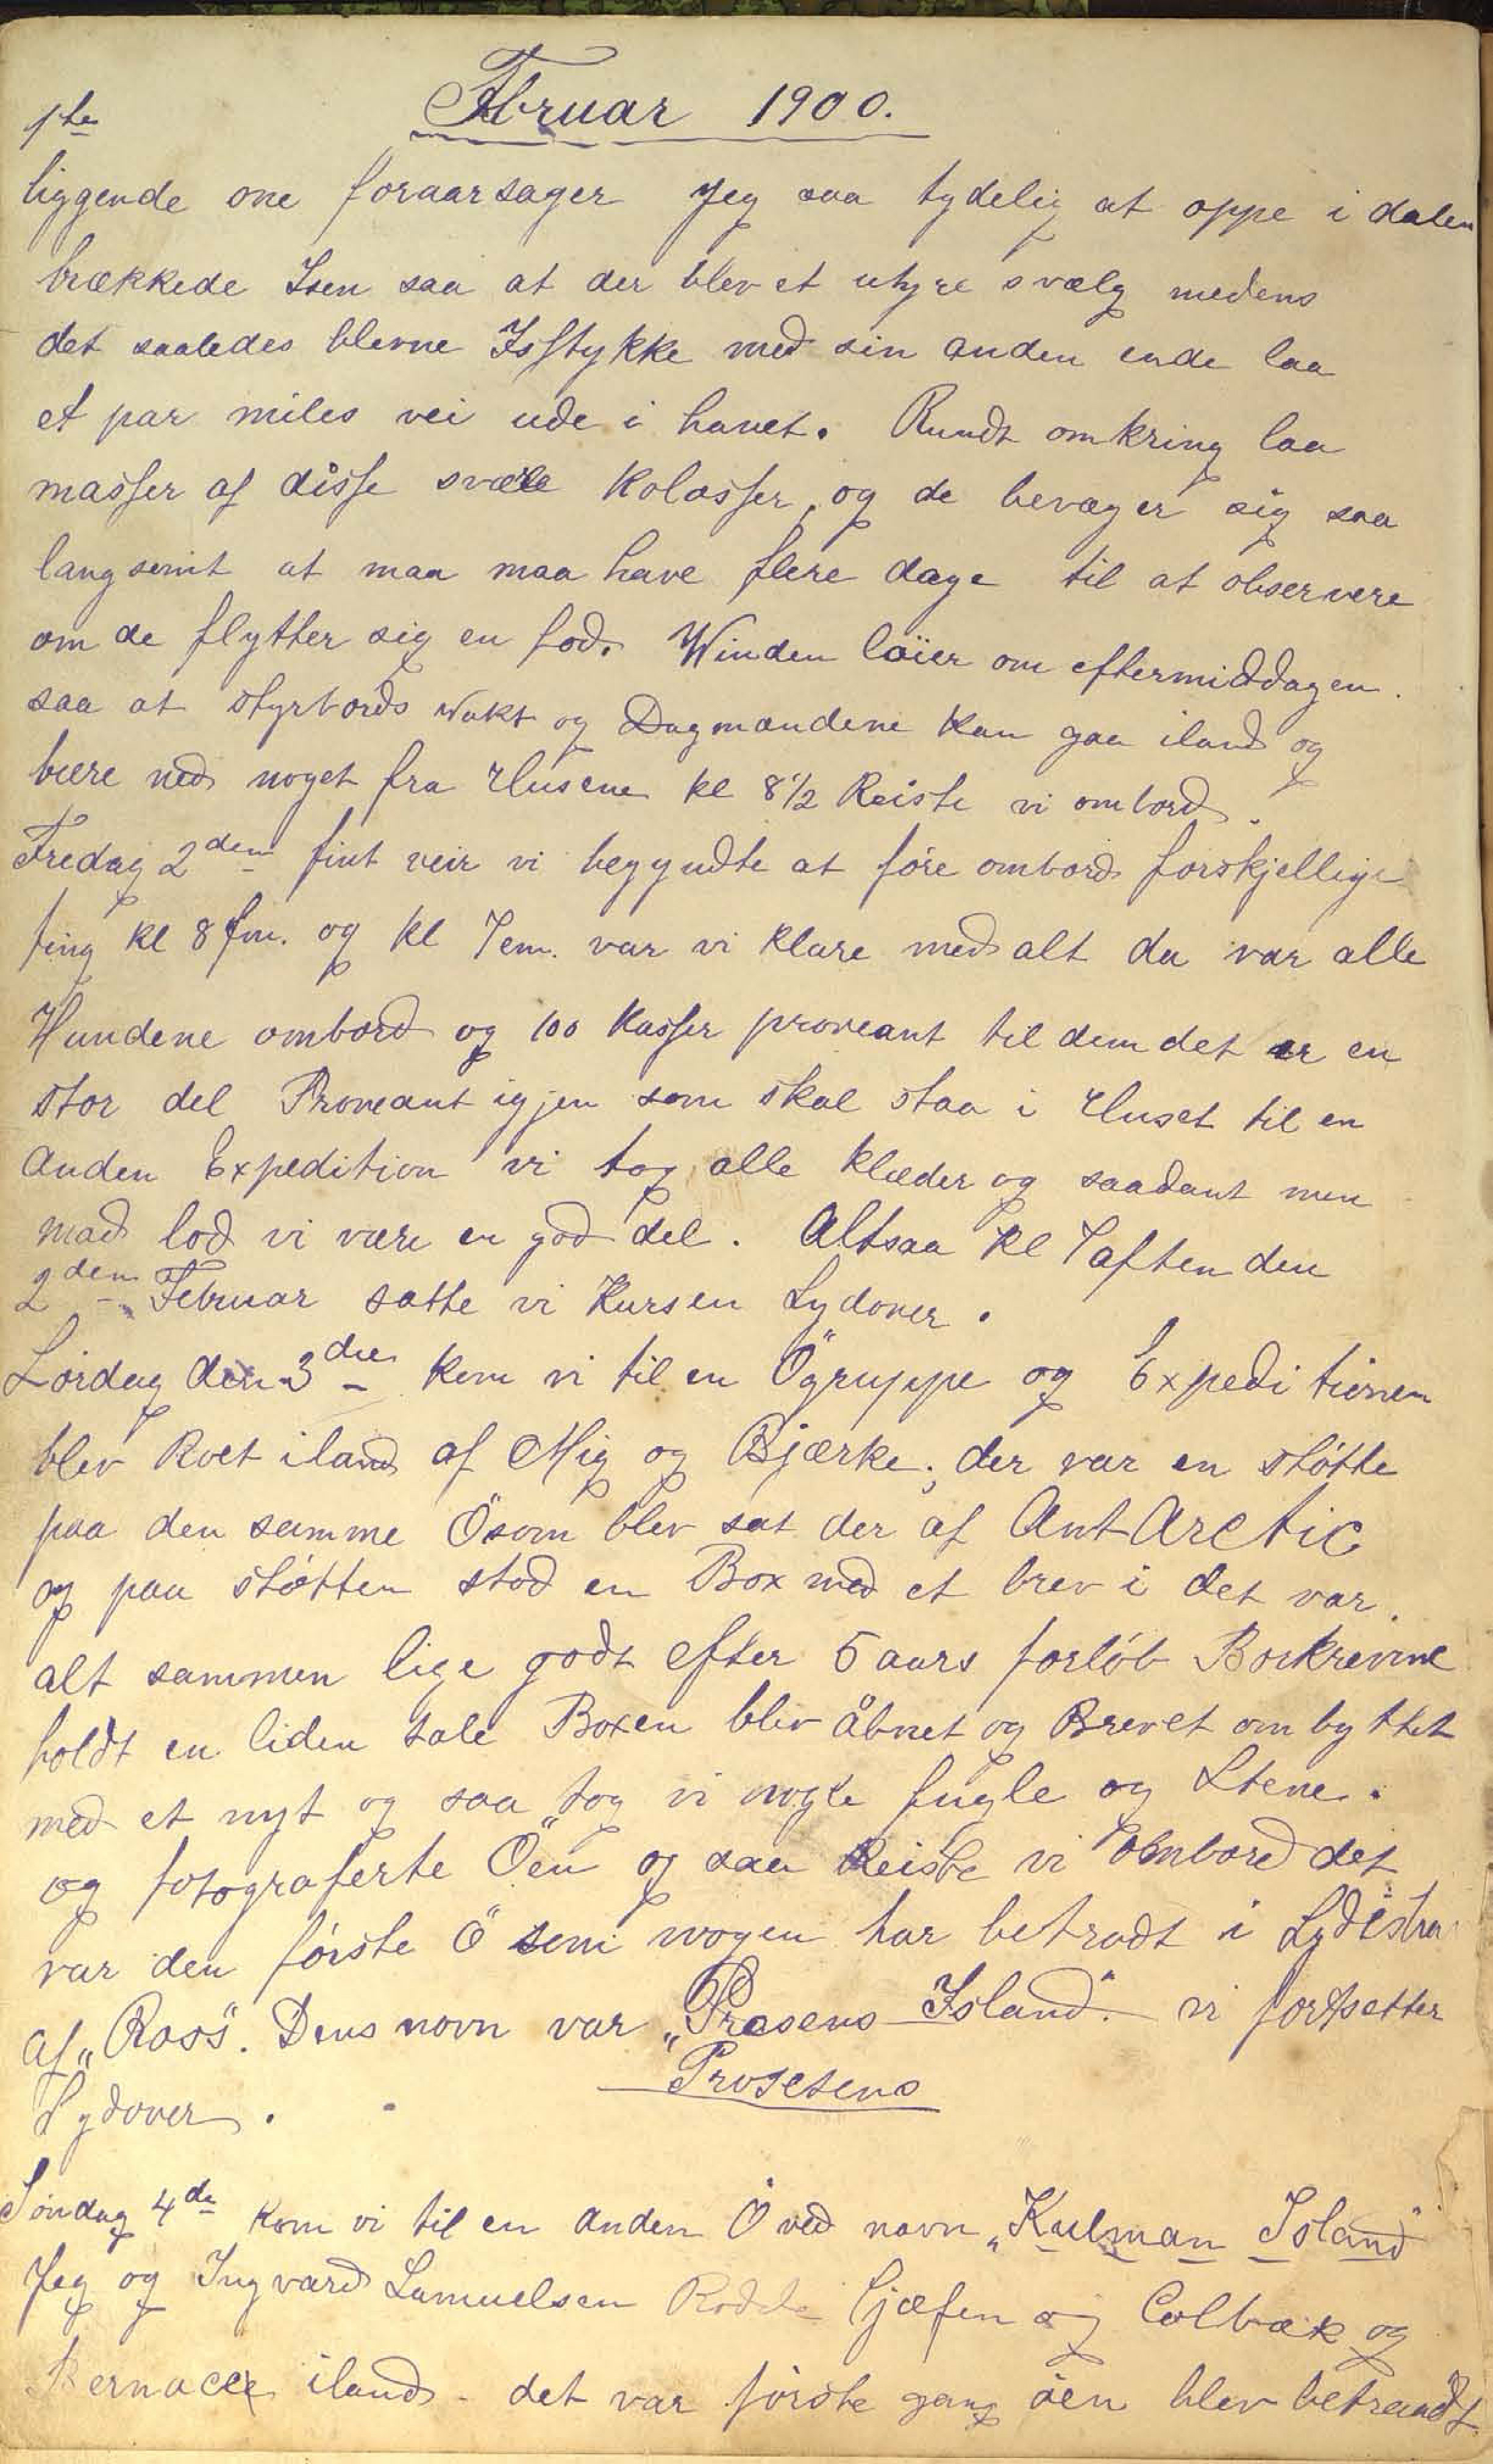 1ste Februar 1900.
liggende one foraarsager Jeg saa tydelig at oppe i dalen
brækkede Isen saa at der blev et uhyre svælg medens
det saaledes blevne Isstykke med sin anden ende laa
et par miles vei ude i havet. Rundt omkring laa
masser af disse svære Kolosser, og de bevæger sig saa
langsomt at maa maa have flere dage til at observere
om de flytter sig en fod. Winden löier om eftermiddagen.
saa at styrbords vakt og Dagmændene kan gaa iland og
bære ned noget fra Husene kl 8½ Reiste vi ombord.
Fredag 2den fint veir vi begyndte at före ombord forskjellige
ting kl 8 fm. og kl 7 em. var vi klare med alt da var alle
Hundene ombord og 100 Kasser proveant til dem det er en
stor del Proveant igjen som skal staa i Huset til en
anden Expedition vi tog alle klæder og saadant men
mad lod vi være en god del. Altsaa kl 7 aften den
2den Februar satte vi Kursen Sydover.
Lördag den 3die kom vi til en Ögruppe og Expeditionen
blev Roet iland af Mig og Bjærke; der var en stötte
paa den samme Ö som blev sat der af AntArctic
og paa stötten stod en Box med et brev i det var.
alt sammen lige godt efter 5 aars forlöb Borkrevine
holdt en liden tale Boxen blev åbnet og Brevet ombyttet
med et nyt og saa tog vi nogle fugle og Stene.
og fotograferte Öen og saa Reiste vi ombord det
var den förste Ö som nogen har betradt i Sydistra
af „Ross". Dens navn var „Presens Island". vi fortsetter
Prosesens
Sydover.
Söndag 4de kom vi til en anden Ö ved navn „Kulman Island"
Jeg og Ingvard Samuelsen Rodde Cjæfen og Colbæk og
Bernacce iland - det var förste gang öen blev betraadt.